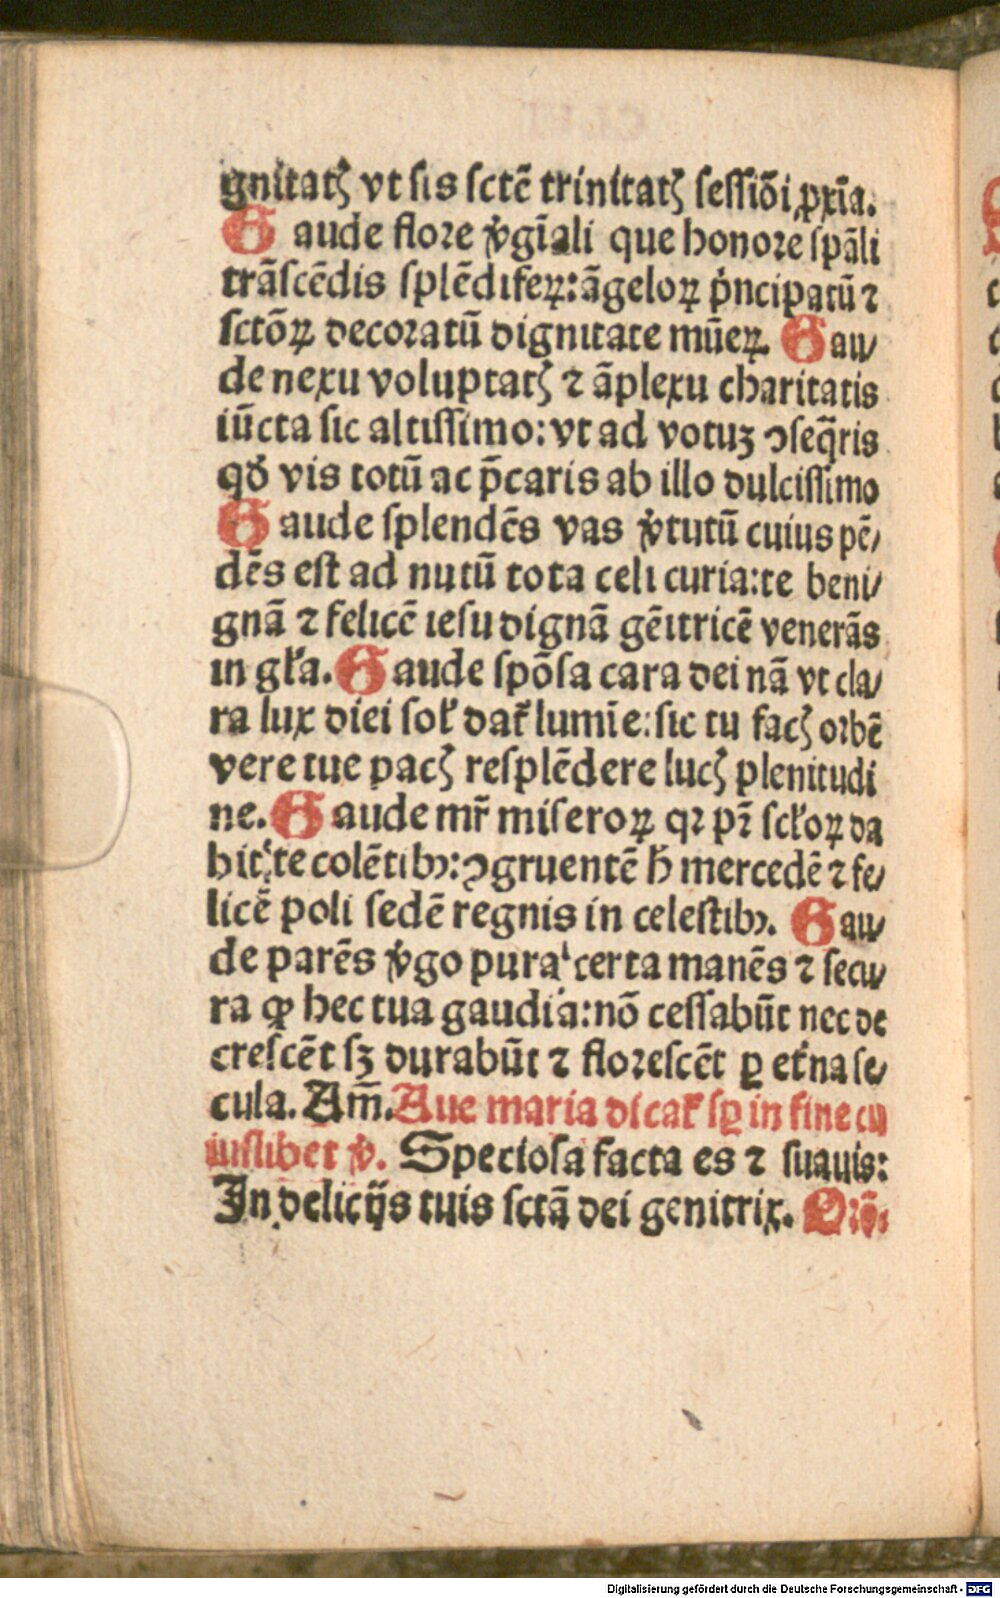 gnitatꝫ vt sis sctē trinitatꝫ sessiōi ꝓxīa.
Gaude flore v̓gīali que honore spāli
trāscēdis splēdiferꝝ: āgeloꝝ p̓ncipatū ⁊
sctōꝝ decoratū dignitate mūerꝝ. Gau/
de nexu voluptatꝫ ⁊ āplexu charitatis
iūcta sic altissimo: vt ad votuꝫ ↄseq̄ris
qď vis totū ac p̄caris ab illo dulcissimo
Gaude splendēs vas v̓tutū cuius pē/
dēs est ad nutū tota celi curia: te beni/
gnā ⁊ felicē iesu dignā gēitricē venerās
in gl̓a. Gaude spōsa cara dei nā vt cla/
ra lux diei sol̓ dat̓ lumīe: sic tu facꝫ orbē
vere tue pacꝫ resplēdere lucꝫ plenitudi
ne. Gaude mr̄ miseroꝝ qꝛ pr̄ scl̓oꝝ da
bit te colētibꝰ: ↄgruentē h̄ mercedē ⁊ fe/
licē poli sedē regnis in celestibꝰ. Gau/
de parēs v̓go pura certa manēs ⁊ secu/
ra ꝙ hec tua gaudia: nō cessabūt nec de
crescēt sꝫ durabūt ⁊ florescēt ꝑ et̓na se/
cula. Am̄. Aue maria dicat̓ sꝑ in fine cu
iuslibet v̓. Speciosa facta es ⁊ suauis:
In delicijs tuis sctā dei genitrix. Orō.
Digitalisierung gefördert durch die Deutsche Forschungsgemeinschaft - DFG